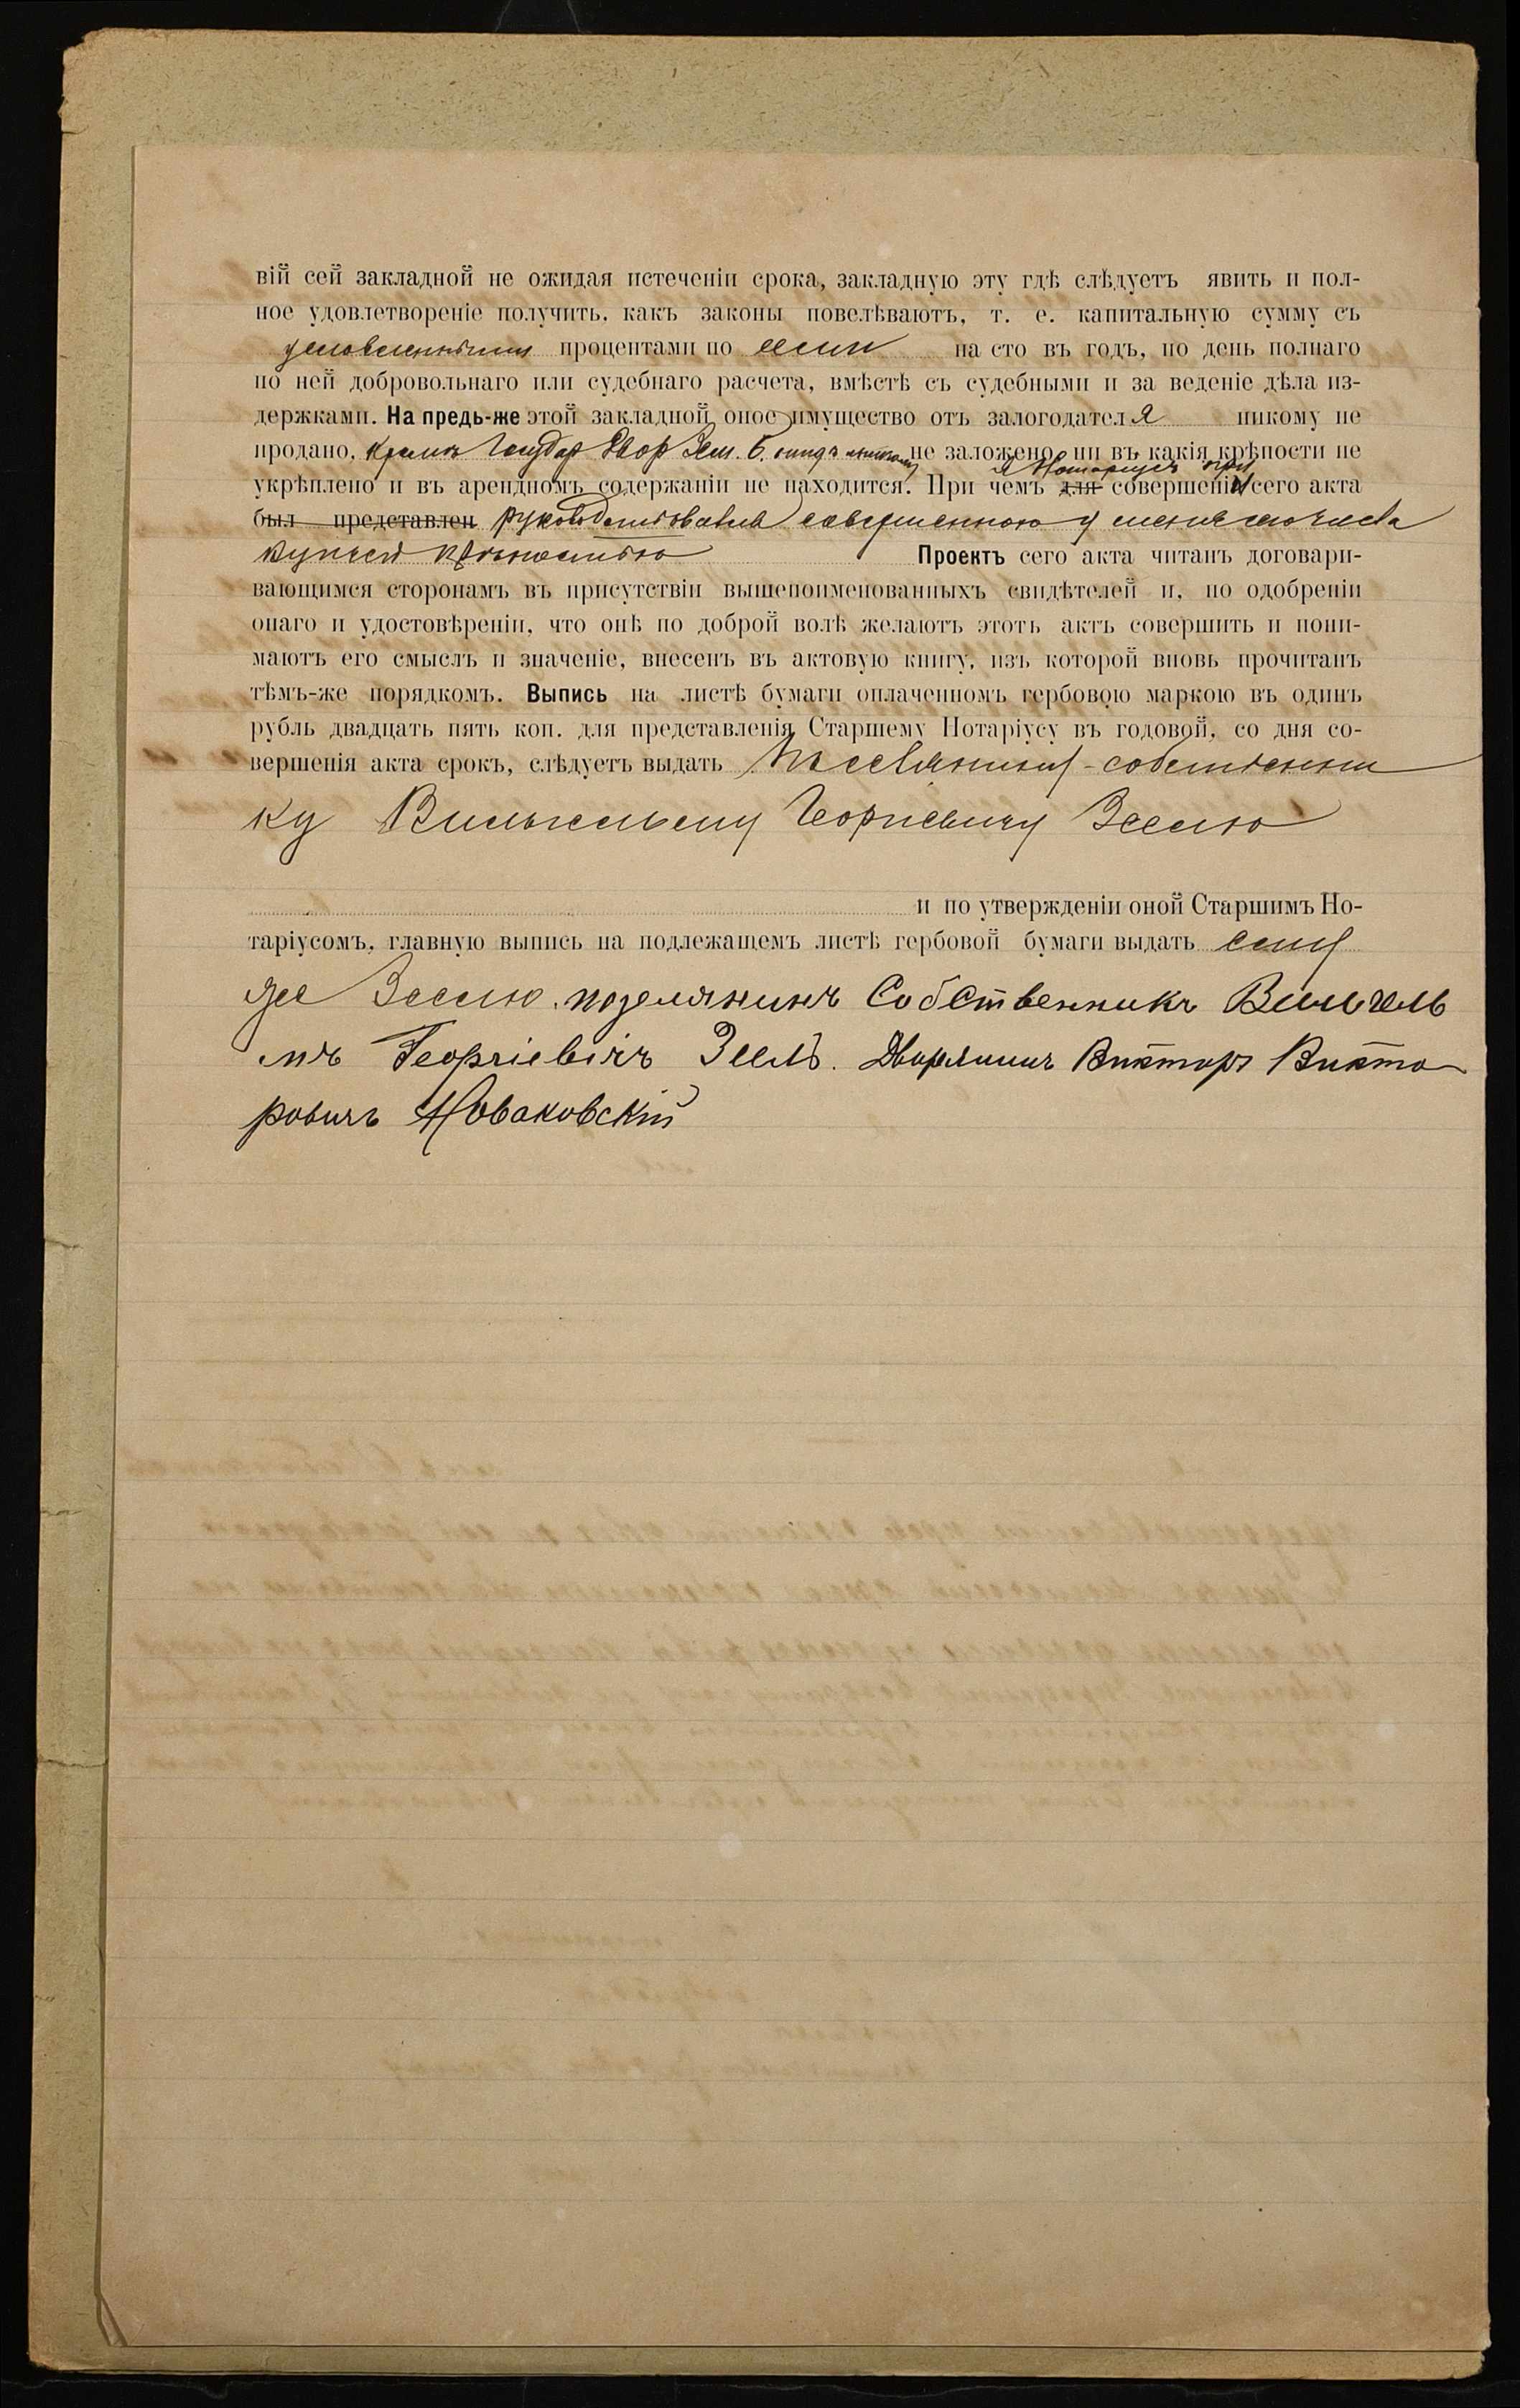 вій сей закладной не ожидая истеченіи срока, закладную эту гдѣ слѣдуетъ явить и пол-
ное удовлетвореніе получить, какъ законы повелѣваютъ, т. е. капитальную сумму съ
условленными процентами по на сто въ годъ, по день полнаго
по ней добровольнаго или судебнаго расчета, вмѣстѣ съ судебными и за веденіе дѣла из-
держками. На предь-же этой закладной оное имущество отъ залогодателя никому не
продано, кромѣ Государ Двор Зем. Б. не заложено ни въ какія крѣпости не
я Нотаріусъ при
укрѣплено и въ арендномъ содержаніи не находится. При чемъ для совершеніи сего акта
был представлен руководствовался совершенною у меня сего числа
купчей крѣпостью Проектъ сего акта читанъ договари-
вающимся сторонамъ въ присутствіи вышепоименованныхъ свидѣтелей и, по одобреніи
онаго и удостовѣреніи, что онѣ по доброй волѣ желаютъ этотъ актъ совершить и пони-
маютъ его смыслъ и значеніе, внесенъ въ актовую книгу, изъ которой вновь прочитанъ
тѣмъ-же порядкомъ. Выпись на листѣ бумаги оплаченномъ гербовою маркою въ одинъ
рубль двадцать пять коп. для представленія Старшему Нотаріусу въ годовой, со дня со-
вершенія акта срокъ, слѣдуетъ выдать поселянину-собственни
ку Вильгельму Георгіевичу Зеелю
и по утвержденіи оной Старшимъ Но-
таріусомъ, главную выпись на подлежащемъ листѣ гербовой бумаги выдать ему
же Зеелю. поселянинъ Собственникъ Вильгель
мъ Георгіевичъ Зеель. Дворянинъ Викторъ Викто
ровичъ Новаковскій